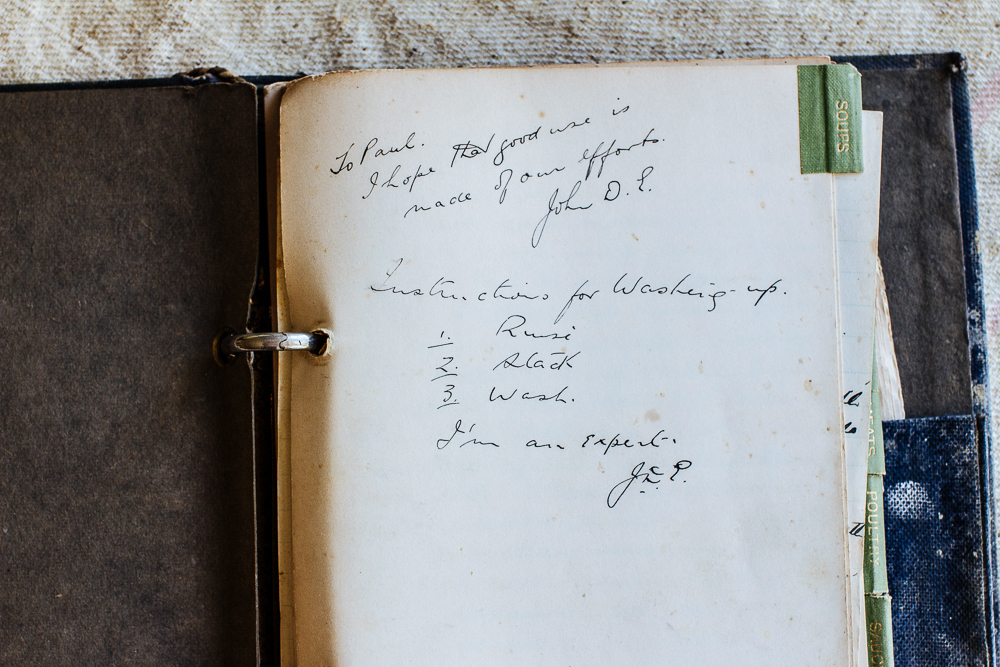 To Paul.
I hope that good use is
made of our efforts.
John D. E.
Instructions for Washing-up.
1. Rinse
2. Stack
3. Wash.
I'm an expert.
J.E.P.
SOUPS
MEATS
POULTRY
SAUC